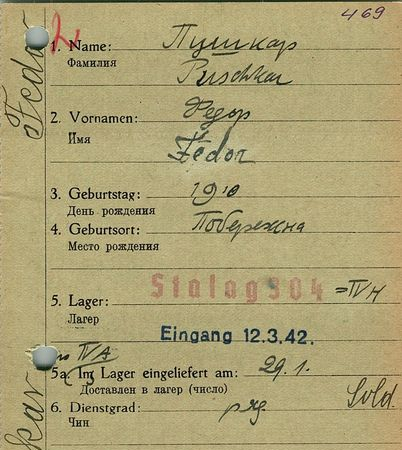 469
1. Name: Пушкар
Фамилия Puschkar
2. Vornamen: Федор
Имя Fedor
3. Geburtstag: 1910
День рождения
4. Geburtsort: Побережна
Место рождения
Stalag 304 = IV H
5. Lager:
Лагер
Eingang 12.3.42.
IV A
5a. Im Lager eingeliefert am: 29.1.
Доставлен в лагер (число)
6. Dienstgrad: Sold.
Чин
Fedor
kar